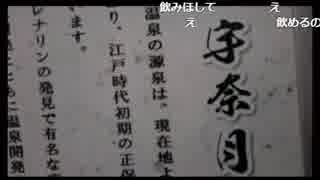 飲みほして
え
え
飲めるの
宇奈月
温泉の源泉は、現在地よ
り、江戸時代初期の正保
います。
レナリンの発見で有名な
ともに温泉開発